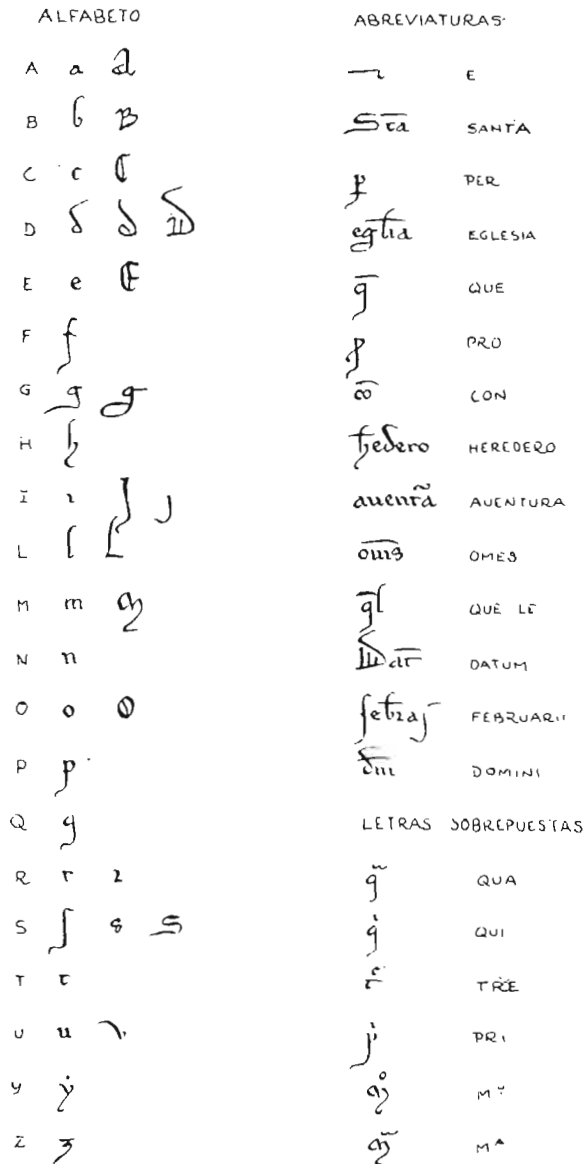 ALFABETO
A a a
B b B
C c C
D d d D
E e E
F f
G g g
H h
I ı J j
L l L
M m m
N n
O o O
P p
Q q
R r 2
S ʃ s S
T t
U u v
Y ẏ
Z z
ABREVIATURAS
E
Sta SANTA
ꝑ PER
eglia EGLESIA
q̄ QUE
ꝓ PRO
CON
hedero HEREDERO
auentã AUENTURA
oms OMES
q̄l QUE LE
Dat DATUM
febraj FEBRUARII
dni DOMINI
LETRAS SOBREPUESTAS
q QUA
q QUI
t TRE
p PRI
m M
m Mᴬ